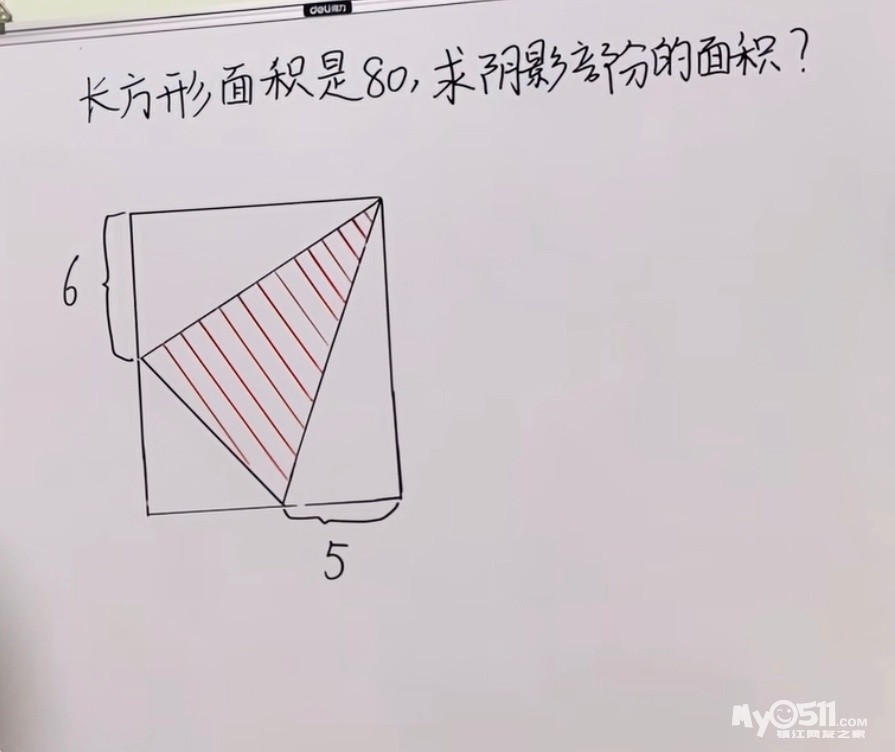 deli得力
长方形面积是80,求阴影部份的面积?
6
5
My0511.COM
镇江网友之家